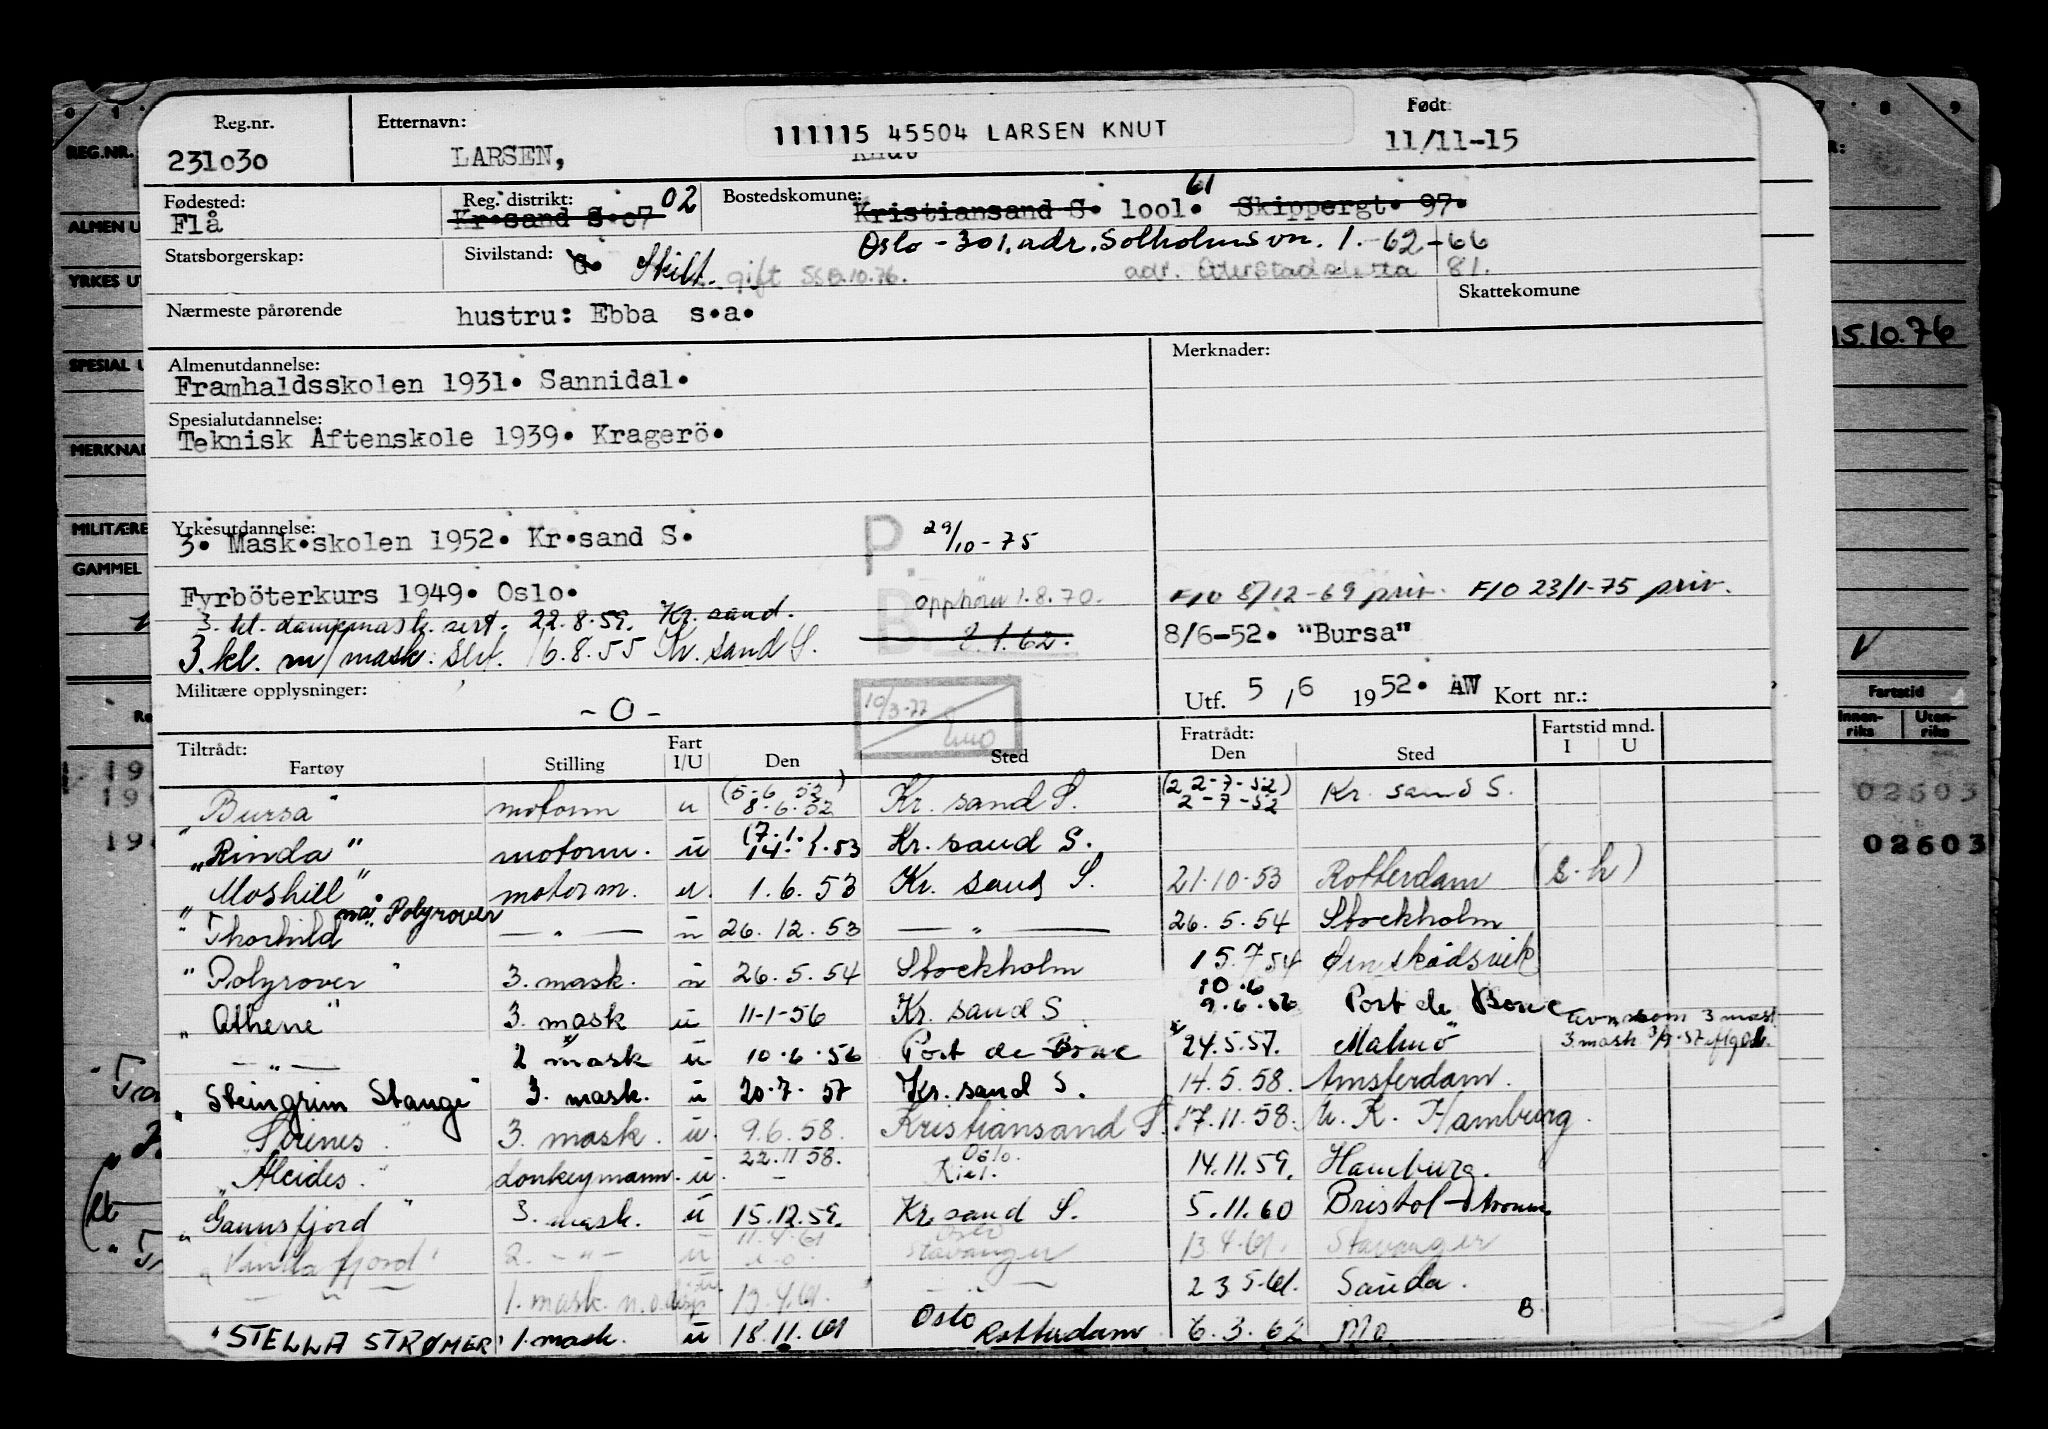 Reg.nr. Etternavn: 111115 45504 LARSEN KNUT Født
231030 LARSEN, 11/11-15
Fødested: Reg. distrikt: 02 Bostedskomune: 61
Flå Kr.sand S.07 Kristiansand S. 1001. Skippergt. 97.
Oslo - 301. adr. Solholmsvn. 1. -62-66
Statsborgerskap: Sivilstand: G. Skilt. gift SSB.10.76. adr. 81.
Skattekomune
Nærmeste pårørende hustru: Ebba s.a.
15.10.76
Almenutdannelse: Merknader:
Framhaldsskolen 1931. Sannidal.
Spesialutdannelse:
Teknisk Aftenskole 1939. Kragerö.
Yrkesutdannelse:
3. Mask.skolen 1952. Kr.sand S. P. 29/10-75
Fyrböterkurs 1949. Oslo. B. opphøw 1.8.70. F/O 8/12-69 priv. F/O 23/1-75 priv.
3. kl. dampmask. sert. 22.8.59. Kr. sand. 2.1.62. 8/6-52. "Bursa"
3. kl. m/mask. sert. 16.8.55 Kr. sand S.
Militære opplysninger: - O - 10/3-77 Utf. 5/6 1952. AW Kort nr.:
Tiltrådt: Fratrådt: Fartstid mnd.
Fartøy Stilling Fart I/U Den Sted Den Sted I U
"Bursa" motorm u (5-6 52) 8.6.52 Kr. sand S. (22-7-52) 2-7-52 Kr. sand S.
"Rinda" motorm. u (7.1. 14.1.53 Kr. sand S.
"Moshill" motorm. u. 1.6.53 Kr. sand S. 21.10.53 Rotterdam (s.h)
"Thorhild nå: Polyrover — " — u 26.12.53 — " — 26.5.54 Stockholm
"Polyrover" 3. mask. u 26.5.54 Stockholm 15.7.54 Ørnskødsvik
"Athene" 3. mask u 11-1-56 Kr. sand S. 10.6 9.6.56 Port de Bouc
— " — 2 mask u. 10.6.56 Port de Bouc 24.5.57. Malmö som 3 mask
3. mask
"Steingrim Stange" 3. mask. u 20.7.57 Kr. sand S. 14.5.58. Amsterdam.
"Sirenes." 3. mask. u. 9.6.58. Kristiansand S. 17.11.58. Hamburg.
"Alcides." donkeymann. u. 22.11.58. Oslo. Kiel. 14.11.59. Hamburg.
"Gannsfjord" 3. mask. u 15.12.59. Kr. sand S. 5.11.60 Bristol
2. — " — u 11.4.61 Stavanger 13.4.61. Stavanger
— " — 1. mask. 13.4.61. — " — 23.5.61. Sauda.
"STELLA STRØMER" 1. mask. u 18.11.61 Oslo Rotterdam 6.3.62 Mo B.
REG.NR.
ALMEN U
YRKES UT
SPESIAL U
MERKNAD
MILITÆRE
GAMMEL
Fartstid
Innen-riks Uten-riks
02603
02603